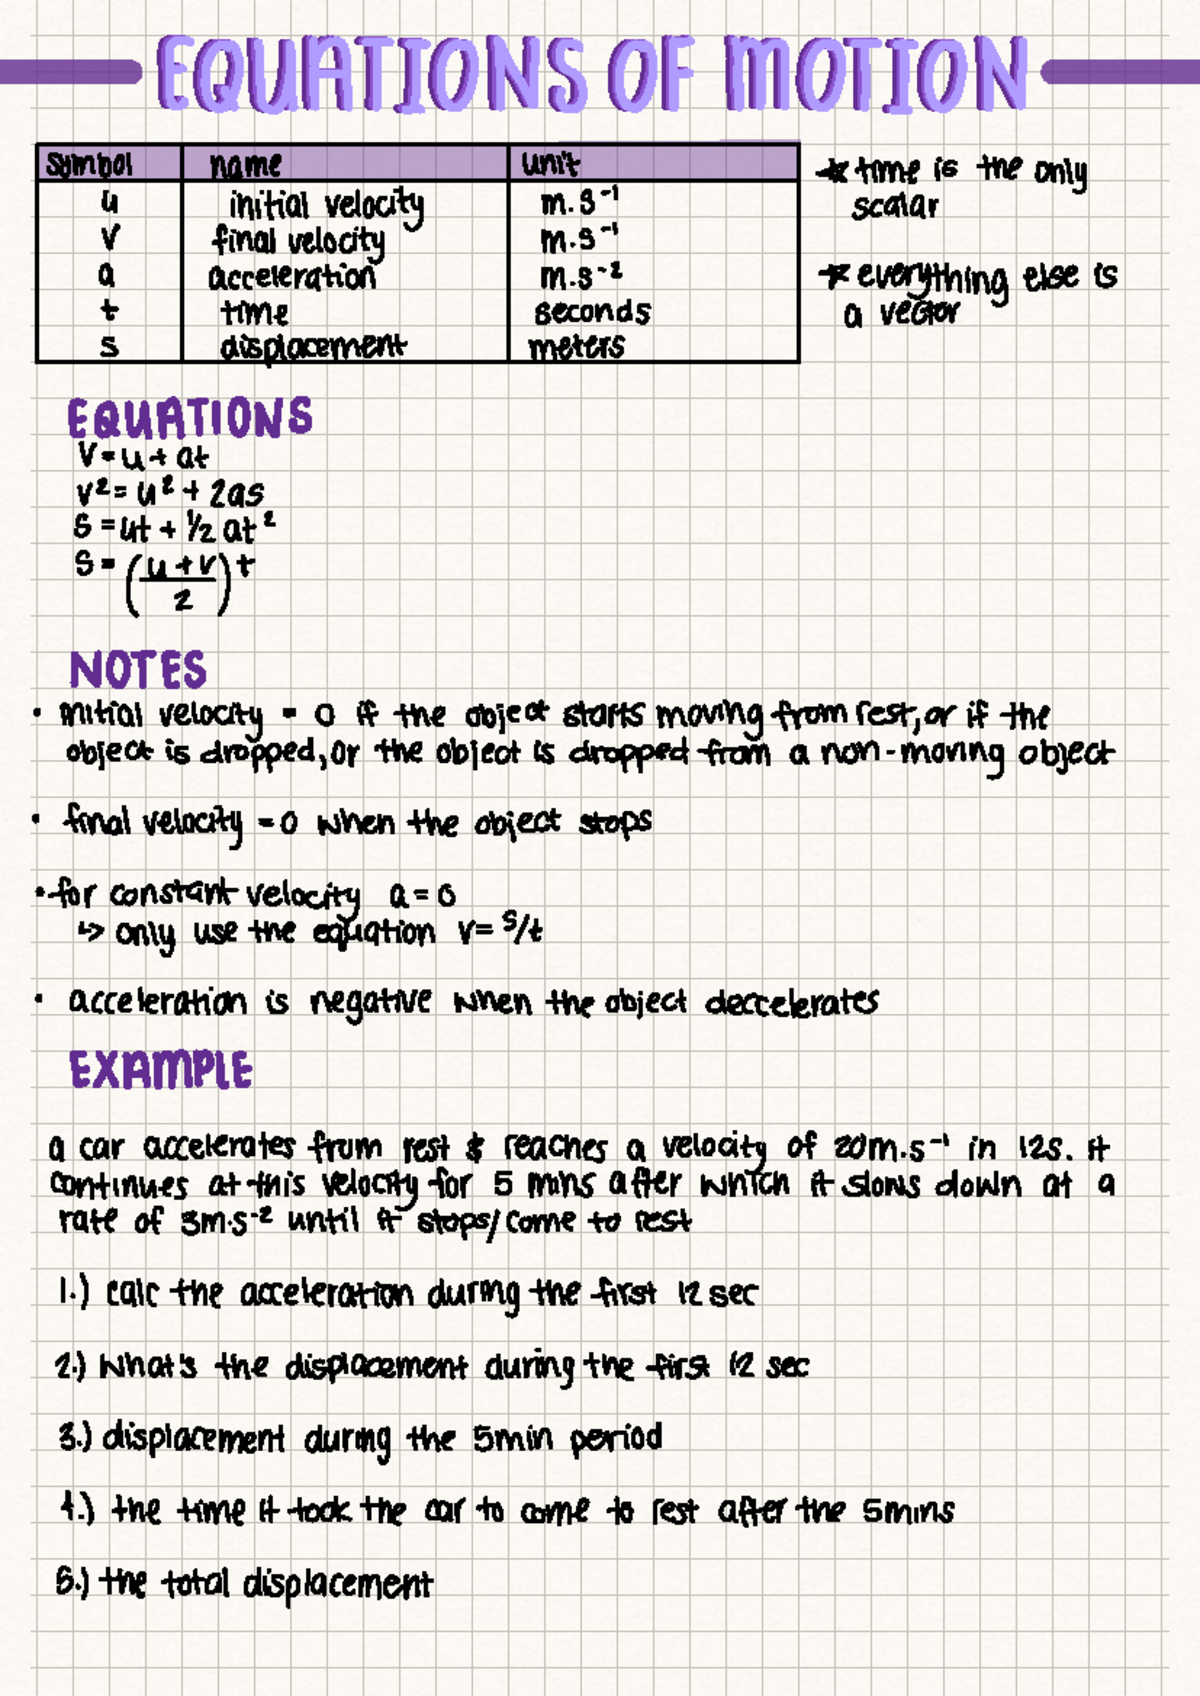 EQUATIONS OF MOTION
symbol name unit
u initial velocity m.s⁻¹
v final velocity m.s⁻¹
a acceleration m.s⁻²
t time seconds
s displacement meters
* time is the only
scalar
* everything else is
a vector
EQUATIONS
v = u + at
v² = u² + 2as
s = ut + ½ at²
s = (u + v / 2) t
NOTES
• initial velocity = 0 if the object starts moving from rest, or if the
object is dropped, or the object is dropped from a non-moving object
• final velocity = 0 when the object stops
• for constant velocity a = 0
↳ only use the equation v = s/t
• acceleration is negative when the object deccelerates
EXAMPLE
a car accelerates from rest & reaches a velocity of 20m.s⁻¹ in 12s. it
continues at this velocity for 5 mins after which it slows down at a
rate of 3m.s⁻² until it stops/come to rest
1.) calc the acceleration during the first 12 sec
2.) What's the displacement during the first 12 sec
3.) displacement during the 5min period
4.) the time it took the car to come to rest after the 5mins
5.) the total displacement